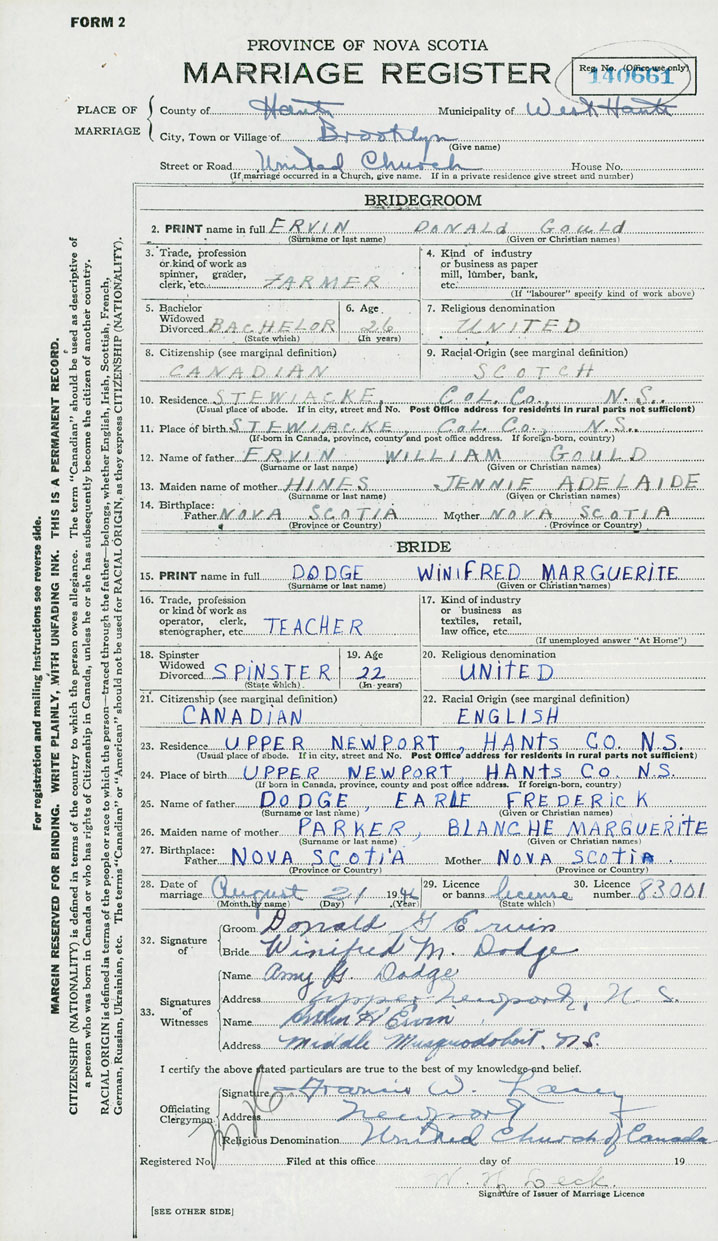 FORM 2
PROVINCE OF NOVA SCOTIA
MARRIAGE REGISTER
Reg. No. (Office use only)
140661
PLACE OF MARRIAGE
County of Hants Municipality of West Hants
City, Town or Village of Brooklyn
(Give name)
Street or Road United Church House No.
(If marriage occurred in a Church, give name. If in a private residence give street and number)
BRIDEGROOM
2. PRINT name in full ERVIN DONALD GOULD
(Surname or last name) (Given or Christian names)
3. Trade, profession or kind of work as spinner, grader, clerk, etc. FARMER
4. Kind of industry or business as paper mill, lumber, bank, etc.
(If "labourer" specify kind of work above)
5. Bachelor Widowed Divorced BACHELOR
(State which)
6. Age 26
(In years)
7. Religious denomination
UNITED
8. Citizenship (see marginal definition)
CANADIAN
9. Racial Origin (see marginal definition)
SCOTCH
10. Residence STEWIACKE, COL. CO., N.S.
(Usual place of abode. If in city, street and No. Post Office address for residents in rural parts not sufficient)
11. Place of birth STEWIACKE, COL. CO., N.S.
(If born in Canada, province, county and post office address. If foreign-born, country)
12. Name of father ERVIN WILLIAM GOULD
(Surname or last name) (Given or Christian names)
13. Maiden name of mother HINES JENNIE ADELAIDE
(Surname or last name) (Given or Christian names)
14. Birthplace:
Father NOVA SCOTIA Mother NOVA SCOTIA
(Province or Country) (Province or Country)
BRIDE
15. PRINT name in full DODGE WINIFRED MARGUERITE
(Surname or last name) (Given or Christian names)
16. Trade, profession or kind of work as operator, clerk, stenographer, etc. TEACHER
17. Kind of industry or business as textiles, retail, law office, etc.
(If unemployed answer "At Home")
18. Spinster Widowed Divorced SPINSTER
(State which)
19. Age 22
(In years)
20. Religious denomination
UNITED
21. Citizenship (see marginal definition)
CANADIAN
22. Racial Origin (see marginal definition)
ENGLISH
23. Residence UPPER NEWPORT, HANTS CO. N.S.
(Usual place of abode. If in city, street and No. Post Office address for residents in rural parts not sufficient)
24. Place of birth UPPER NEWPORT, HANTS CO. N.S.
(If born in Canada, province, county and post office address. If foreign-born, country)
25. Name of father DODGE, EARLE FREDERICK
(Surname or last name) (Given or Christian names)
26. Maiden name of mother PARKER, BLANCHE MARGUERITE
(Surname or last name) (Given or Christian names)
27. Birthplace:
Father NOVA SCOTIA Mother NOVA SCOTIA.
(Province or Country) (Province or Country)
28. Date of marriage August 21 19
(Month by name) (Day) (Year)
29. Licence or banns license
(State which)
30. Licence number 83001
32. Signature of
Groom Donald G Ervin
Bride Winifred M. Dodge
33. Signatures of Witnesses
Name Amy G. Dodge
Address Upper Newport, N.S.
Name Ervin
Address Middle Musquodoboit, N.S.
I certify the above stated particulars are true to the best of my knowledge and belief.
Officiating Clergyman
Signature Francis W.
Address Newport
Religious Denomination United Church of Canada
Registered No. Filed at this office day of 19
Signature of Issuer of Marriage Licence
[SEE OTHER SIDE]
For registration and mailing instructions see reverse side.
MARGIN RESERVED FOR BINDING. WRITE PLAINLY, WITH UNFADING INK. THIS IS A PERMANENT RECORD.
CITIZENSHIP (NATIONALITY) is defined in terms of the country to which the person owes allegiance. The term "Canadian" should be used as descriptive of
a person who was born in Canada or who has rights of Citizenship in Canada, unless he or she has subsequently become the citizen of another country.
RACIAL ORIGIN is defined in terms of the people or race to which the person—traced through the father—belongs, whether English, Irish, Scottish, French,
German, Russian, Ukrainian, etc. The terms "Canadian" or "American" should not be used for RACIAL ORIGIN, as they express CITIZENSHIP (NATIONALITY).